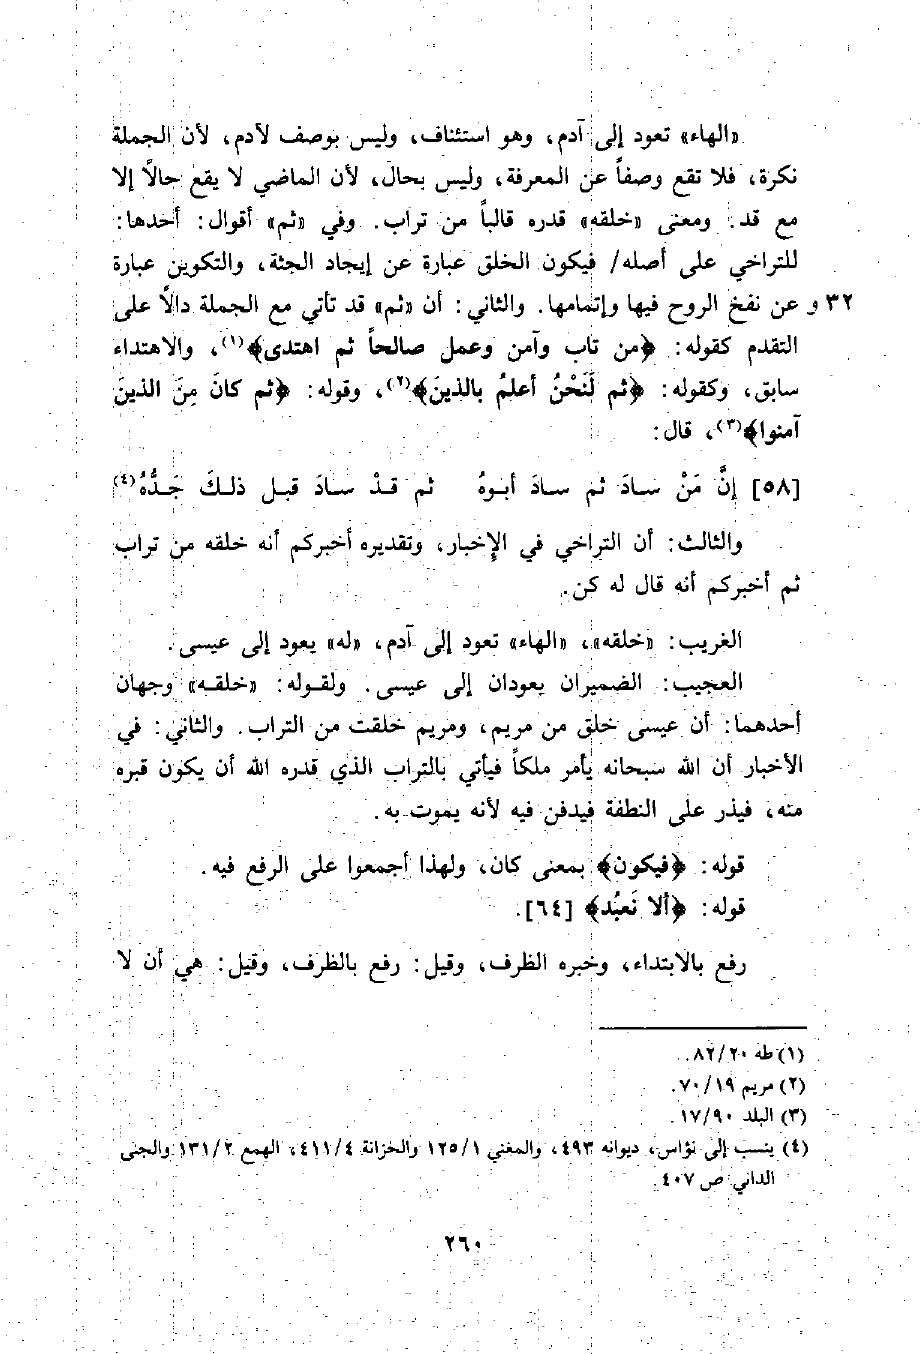 «الهاء» تعود إلى آدم، وهو استئناف، وليس بوصف لآدم، لأن الجملة
نكرة، فلا تقع وصفاً عن المعرفة، وليس بحال، لأن الماضي لا يقع حالًا إلا
مع قد. ومعنى «خلقه» قدره قالباً من تراب. وفي «ثم» أقوال: أحدها:
للتراخي على أصله/ فيكون الخلق عبارة عن إيجاد الجثة، والتكوين عبارة
٣٢ و عن نفخ الروح فيها وإتمامها. والثاني: أن «ثم» قد تأتي مع الجملة دالًا على
التقدم كقوله: ﴿من تاب وآمن وعمل صالحاً ثم اهتدى﴾(١)، والاهتداء
سابق، وكقوله: ﴿ثم لَنَحْنُ أعلمُ بالذينَ﴾(٢)، وقوله: ﴿ثم كانَ مِنَ الذينَ
آمنوا﴾(٣)، قال:
[٥٨] إنَّ مَنْ سادَ ثم سادَ أبوهُ ثم قدْ سادَ قبل ذلكَ جَدُّهُ(٤)
والثالث: أن التراخي في الإخبار، وتقديره أخبركم أنه خلقه من تراب
ثم أخبركم أنه قال له كن.
الغريب: «خلقه»، «الهاء» تعود إلى آدم، «له» يعود إلى عيسى.
العجيب: الضميران يعودان إلى عيسى. ولقوله: «خلقه» وجهان
أحدهما: أن عيسى خلق من مريم، ومريم خلقت من التراب. والثاني: في
الأخبار أن الله سبحانه يأمر ملكاً فيأتي بالتراب الذي قدره الله أن يكون قبره
منه، فيذر على النطفة فيدفن فيه لأنه يموت به.
قوله: ﴿فيكون﴾ بمعنى كان، ولهذا أجمعوا على الرفع فيه.
قوله: ﴿ألا نَعبُد﴾ [٦٤].
رفع بالابتداء، وخبره الظرف، وقيل: رفع بالظرف، وقيل: هي أن لا
(١) طه ٨٢/٢٠.
(٢) مريم ٧٠/١٩.
(٣) البلد ١٧/٩٠.
(٤) ينسب إلى نؤاس، ديوانه ٤٩٣، والمغني ١٢٥/١ والخزانة ٤١١/٤، الهمع ١٣١/٢ والجنى
الداني ص ٤٠٧.
٢٦٠